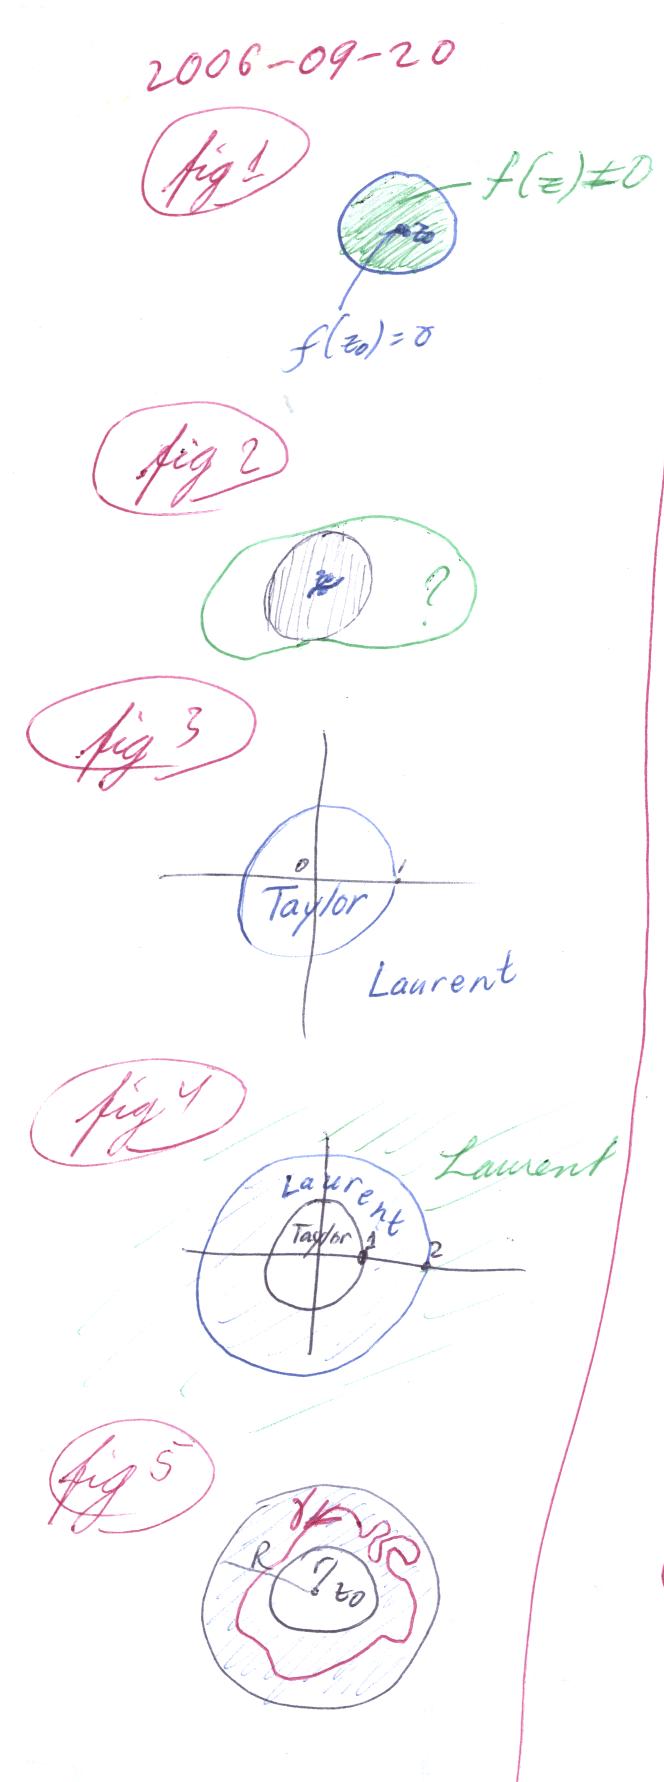 2006-09-20
fig 1
f(z)≠0
z₀
f(z₀)=0
fig 2
?
fig 3
0 1
Taylor
Laurent
fig 4
Laurent
Laurent
Taylor 1 2
fig 5
γ
R ? z₀